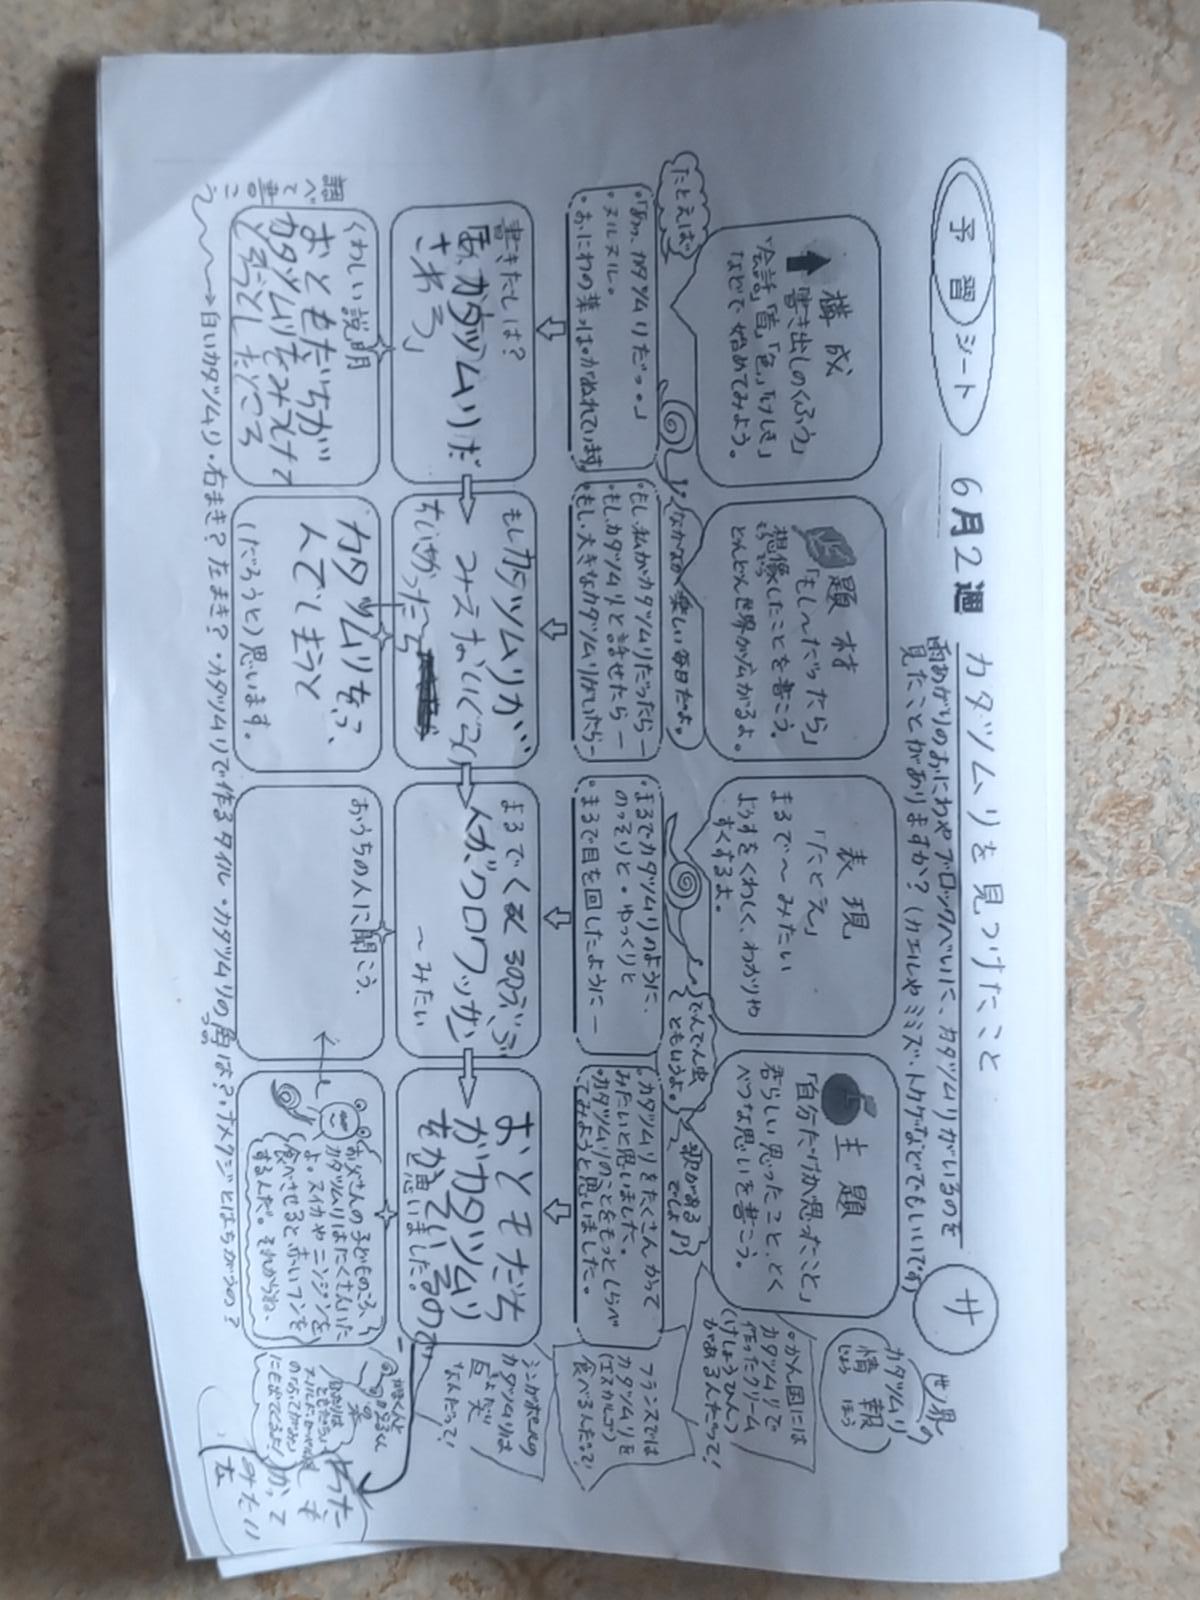 予習シート
6月2週
カタツムリを見つけたこと
サ
雨あがりのおにわやブロックべいに、カタツムリがいるのを
見たことがありますか?(カエルやミミズ、トカゲなどでもいいです)
世界の
カタツムリ
情報
じょうほう
構成
書き出しのくふう
「会話」「音」「色」「けしき」
などで始めてみよう。
題材
「もし〜だったら」
想像したことを書こう。
どんどん世界が広がるよ。
表現
「たとえ」
まるで〜みたい
ようすをくわしく、わかりや
すくするよ。
主題
「自分だけが思ったこと」
君らしい思ったこと、とく
べつな思いを書こう。
かん国には
カタツムリで
作ったクリーム
(けしょうひん)
があるんだって!
たとえば
なかなか楽しい毎日だよ。
でんでん虫
ともいうよ。
歌がある
でしょ♪
・「あっ、カタツムリだっ。」
・ヌルヌル。
・おにわの葉っぱがぬれています
・もし、私がカタツムリだったらー
・もし、カタツムリと話せたらー
・もし、大きなカタツムリがいたらー
・まるでカタツムリのように、
のっそりと・ゆっくりと
・まるで目を回したようにー
・カタツムリをたくさんかって
みたいと思いました。
・カタツムリのことをもっとしらべ
てみようと思いました。
フランスでは
カタツムリを
(エスカルゴ)
食べるんだって!
書きだしは?
カタツムリだ
さわろう」
もしカタツムリが
みえないくらい
ちいさかったら
まるでくるま3だいぶ
人がクロワッサン
〜みたい
おともだち
がカタツムリ
をかっているので
と思いました。
シンガポールの
カタツムリは
巨大
きょだい
なんだって!
くわしい説明
おともだちが
カタツムリをみつけて
人でしまうと
(だろうと)思います。
おうちの人に聞こう、
お父さんの子どものころ、
カタツムリはたくさんいた
よ。スイカやニンジンを
食べさせると、赤いフンを
するんだ。それからね、
かって
みたい
調べて書こう
白いカタツムリ・右まき?左まき?・カタツムリで作るタイル・カタツムリの角は?・ナメクジとはちがうの?
つの